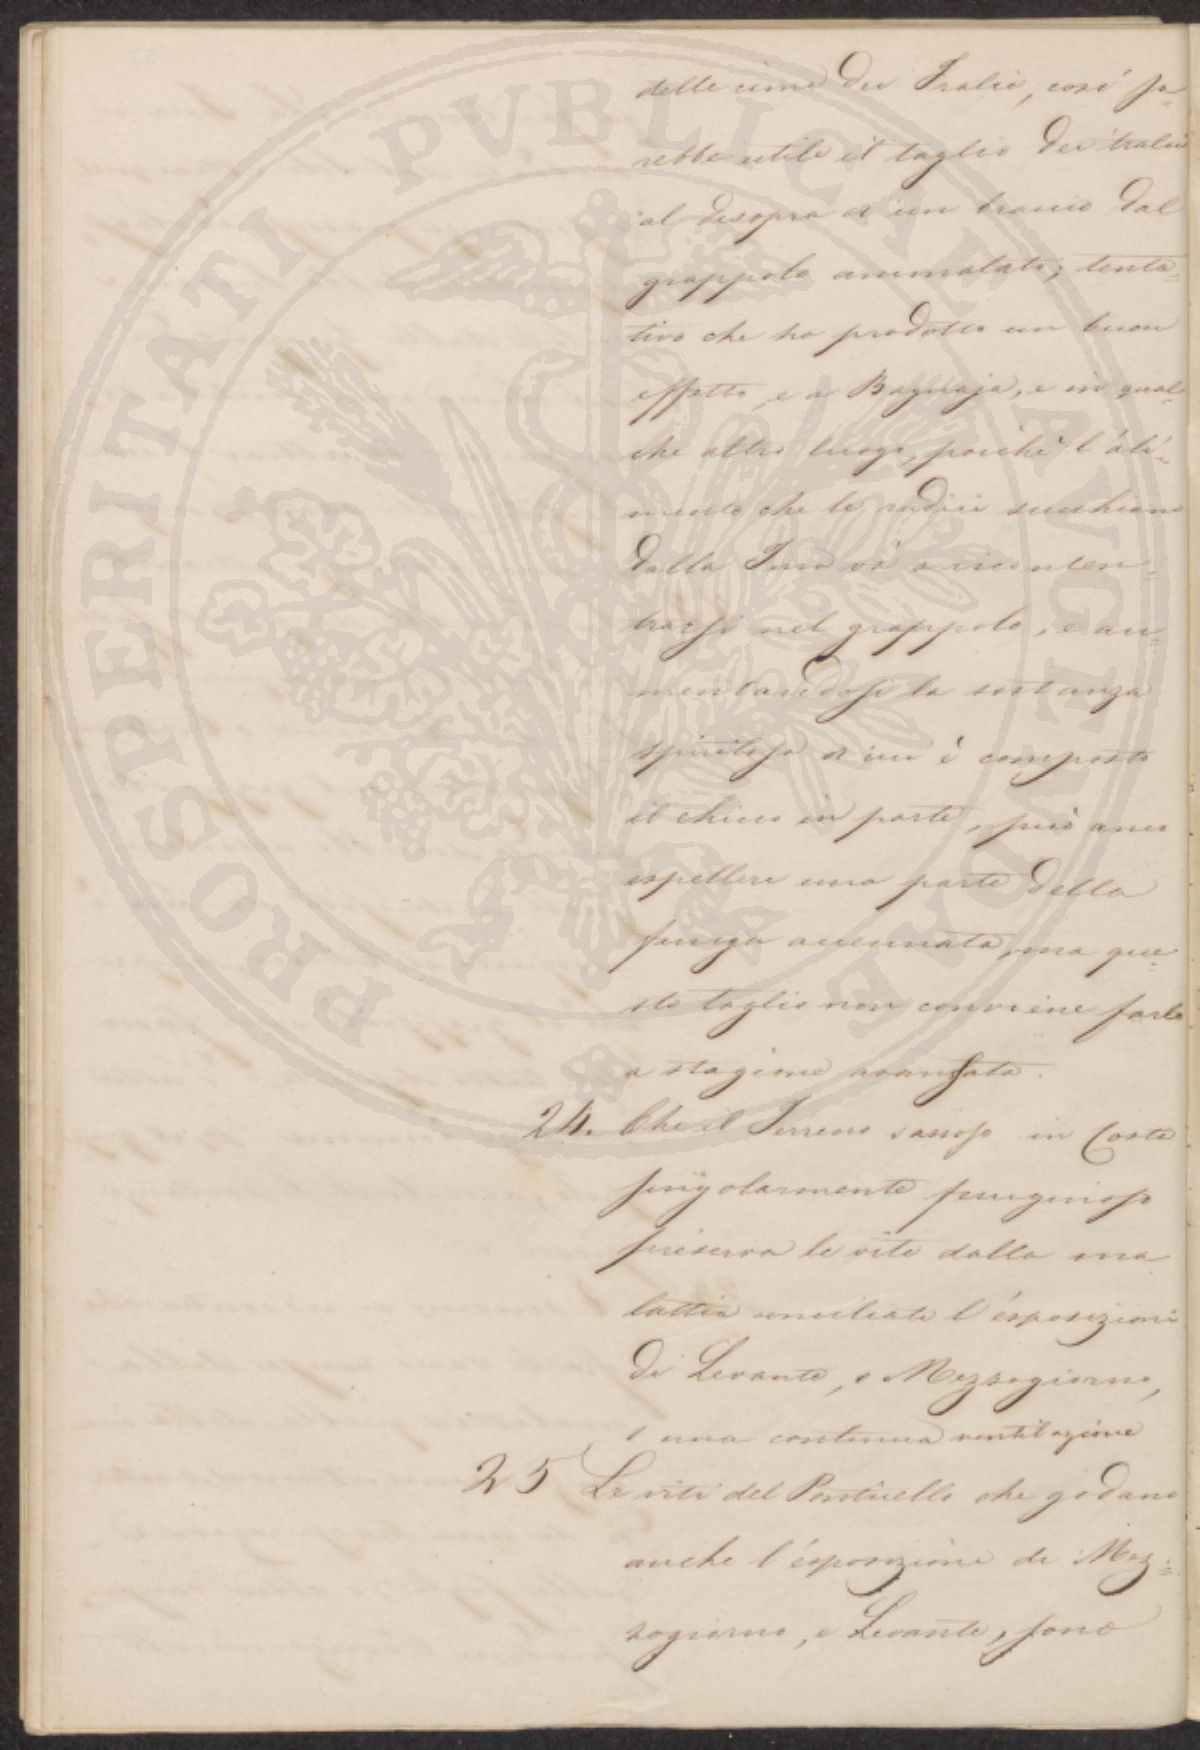 delle cime dei Tralci, così sa=
rebbe utile il taglio dei tralci
al disopra d'un braccio dal
grappolo ammalato; tenta=
tivo che ha prodotto un buon
effetto, e a Bagnaja, e in qual=
che altro luogo, poichè l'ali=
mento che le radici succhiano
dalla Terra và a riconcen=
trarsi nel grappolo, e au=
mentandosi la sostanza
spiritosa di cui è composto
il chicco in parte, può anco
espellere una parte della
funga accennata, ma que=
sto taglio non conviene farlo
a stagione avanzata.
24. Che il Terreno sassoso in Costa
singolarmente feruginoso
preserva le vite dalla ma
lattia conciliate l'esposizioni
di Levante, e Mezzogiorno,
e una continua ventilazione
25 Le viti del Ponticello che godano
anche l'esposizione di Mez=
zogiorno, e Levante, sono
PROSPERITATI PVBLICAE AVGENDAE